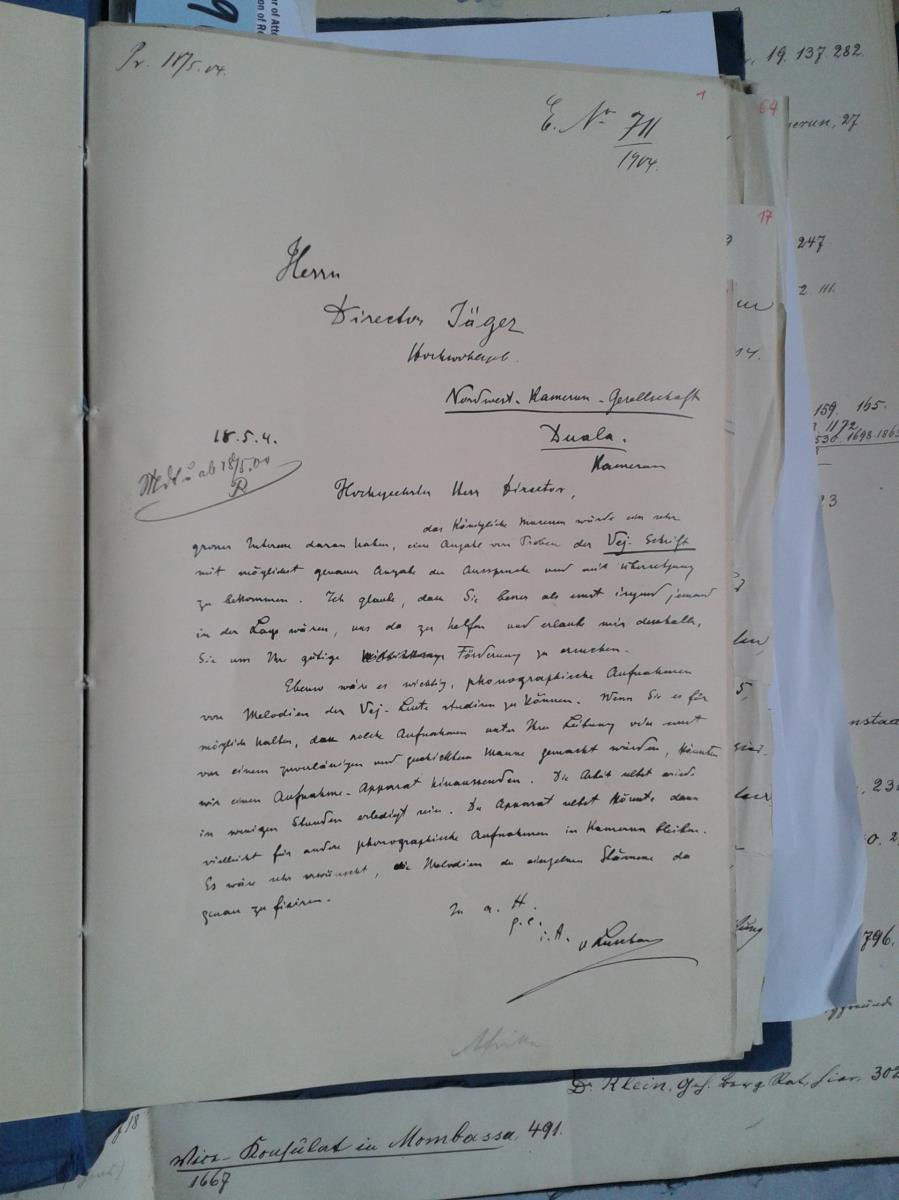 Pr. 18/5.04.
1
E. No 711
1904.
Herrn
Director Jäger
Hochwohlgeb.
Nordwest-Kamerun-Gesellschaft
Duala.
Kamerun
18.5.4.
ab 18/5.04
Hochgeehrter Herr Director,
das Königliche Museum würde ein sehr
grosses Interesse daran haben, eine Anzahl von Proben der Vej-Schrift
mit möglichst genauer Angabe der Aussprache und mit Übersetzung
zu bekommen. Ich glaube, dass Sie besser als sonst irgend jemand
in der Lage wären, uns da zu helfen und erlaube mir deshalb,
Sie um Ihre gütige Förderung zu ersuchen.
Ebenso wäre es wichtig, phonographische Aufnahmen
von Melodien der Vej-Leute studiren zu können. Wenn Sie es für
möglich halten, dass solche Aufnahmen unter Ihrer Leitung oder sonst
von einem zuverlässigen und geschickten Manne gemacht würden, könnten
wir einen Aufnahme-Apparat hinaussenden. Die Arbeit selbst würde
in wenigen Stunden erledigt sein. Der Apparat selbst könnte dann
vielleicht für andere phonographische Aufnahmen in Kamerun bleiben.
Es wäre sehr erwünscht, die Melodien der einzelnen Stämme da
genau zu fixiren.
In a. H.
g. e.
i. A.
v Luschan
Afrika
64
17
19. 137. 282.
27
247
2 111.
14.
159. 165.
1172
530. 1698. 1863
3
5,
23
796.
Dr. Klein, Geh. Berg Rat, hier. 302
Vice-Konsulat in Mombassa 491.
1667